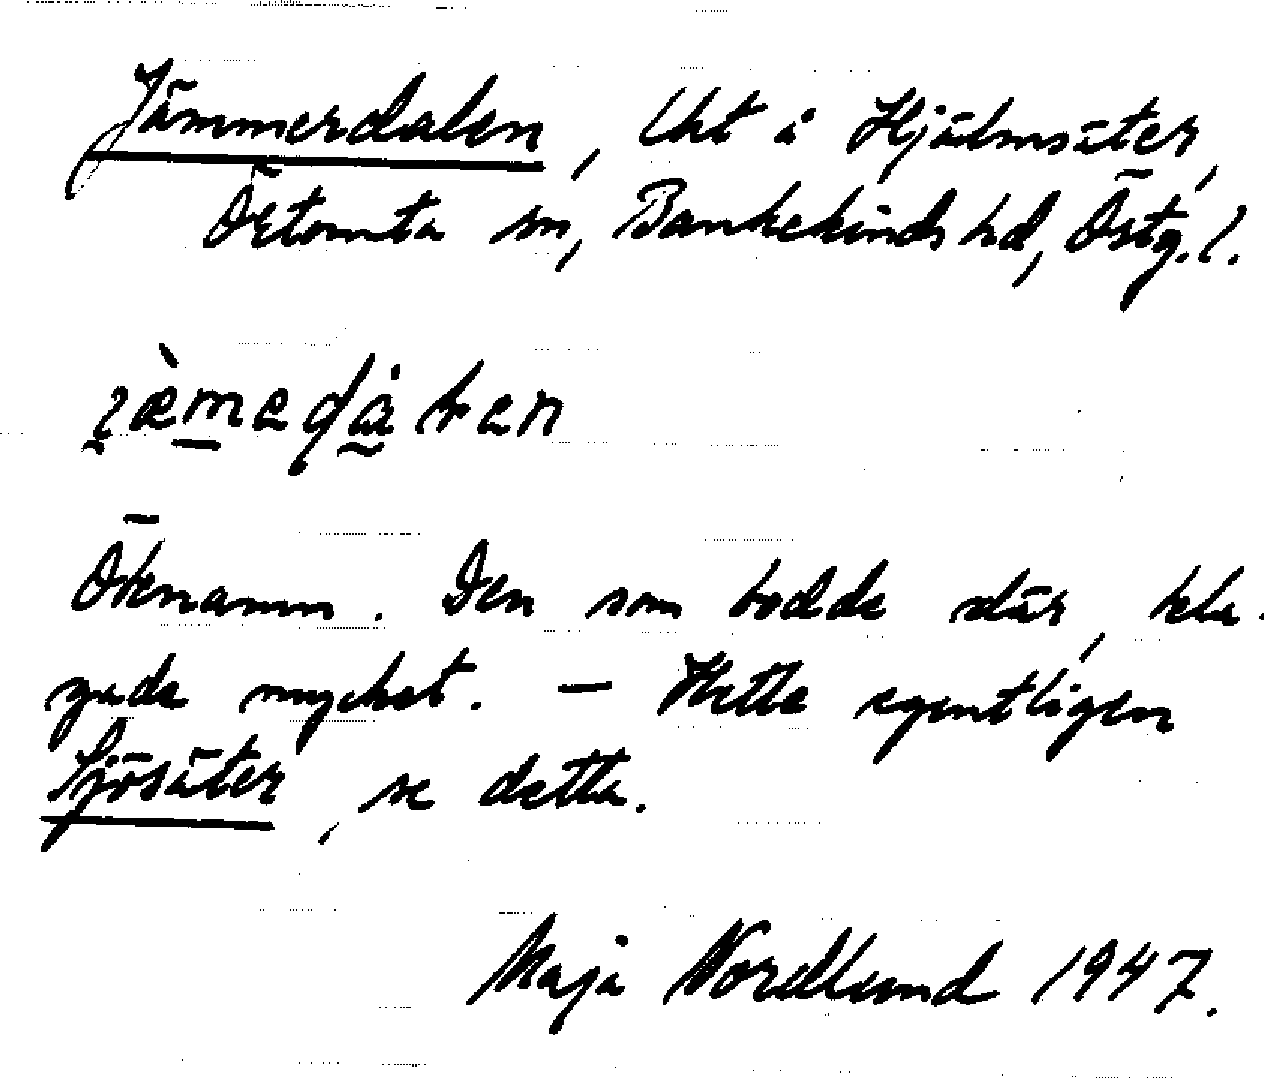 Jämmerdalen, lht å Hjälmsäter,
Örtomta sn, Bankekinds hd, Östg.l.
Öknamn. Den som bodde där, kla-
gade mycket. – Hette egentligen
Sjösäter, se detta.
Maja Nordlund 1947.